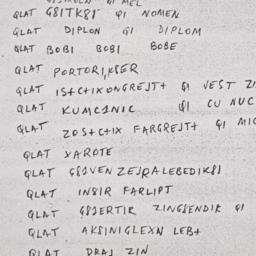 QLAT G8ITK8I QI NOMEN
QLAT DIPLON QI DIPLOM
QLAT BOBI BOBI BOBE
QLAT PORTORI,K8ER
QLAT IS+C+IX ONGREJT+ QI VEST
QLAT KUMCINIC QI CU NUC
QLAT ZOS+C+IX FARGREJT+ QI
QLAT XAROTE
QLAT G8IVEN ZEJRALEBEDIK8I
QLAT IN8IR FARLIPT
QLAT G8IERTIR ZINGGENDIK QI
QLAT AK8INIGLEXN LEB+
QLAT DRAJ ZIN